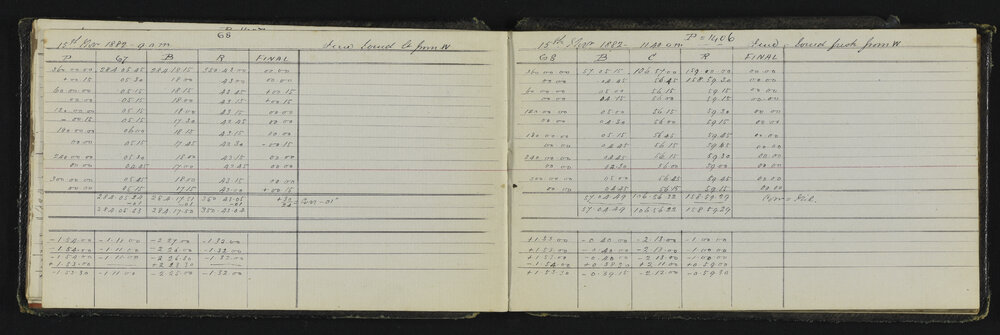 68
15th Nov 1882 - 9 a.m.
P 67 B R FINAL
360.00.00 284.05.45 284.18.15 350.43.00 00.00
+00.15 05.30 18.00 43.00 00.00
60.00.00 05.15 18.15 43.45 +00.15
00.00 05.15 18.00 43.15 +00.15
120.00.00 05.15 18.00 43.15 00.00
-00.15 05.15 17.30 42.45 00.00
180.00.00 06.00 18.15 43.15 00.00
00.00 05.15 17.45 42.30 -00.15
240.00.00 05.30 18.00 43.15 00.00
00.00 04.45 17.00 42.45 00.00
300.00.00 05.45 18.00 43.15 00.00
00.00 05.15 17.15 43.00 +00.15
284.05.24 284.17.51 350.43.05
-.01 -.01 -.01
284.05.23 284.17.50 350.43.04
-1.54.00 -1.11.00 -2.27.00 -1.32.00
-1.54.00 -1.11.00 -2.26.00 -1.32.00
-1.54.00 -1.11.00 -2.26.30 -1.32.00
+1.53.00 +2.23.30
-1.53.30 -1.11.00 -2.25.00 -1.32.00
P = 1406
15th Nov 1882 - 11.40 a.m. Wind - loud fresh from W
68 B C R FINAL
360.00.00 57.05.15 106.57.00 159.00.00 00.00
00.00 04.45 56.45 158.59.30 00.00
60.00.00 05.00 56.15 59.15 00.00
00.00 04.15 56.15 59.15 00.00
120.00.00 05.00 56.15 59.30 00.00
00.00 04.30 56.00 59.15 00.00
180.00.00 05.15 56.45 59.45 00.00
00.00 04.45 56.15 59.45 00.00
240.00.00 04.45 56.45 59.30 00.00
00.00 04.30 56.30 59.00 00.00
300.00.00 05.00 56.45 59.45 00.00
00.00 04.45 56.15 59.15 00.00
57.04.49 106.56.32 158.59.29 Corr = Nil.
57.04.49 106.56.32 158.59.29
11.53.00 -0.40.00 -2.13.00 -1.00.00
+1.53.00 -0.40.00 -2.13.00 -1.00.00
+1.53.00 -0.40.00 -2.13.00 -1.00.00
-1.54.00 +0.38.30 +2.11.00 +0.59.00
+1.53.30 -0.39.15 -2.12.00 -0.59.30